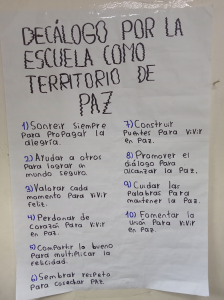 DECÁLOGO POR LA
ESCUELA COMO
TERRITORIO DE
PAZ
1) Sonreír siempre
Para Propagar la
alegría.
2) Ayudar a otros
Para lograr un
mundo seguro.
3) Valorar cada
momento Para vivir
feliz.
4) Perdonar de
Corazón Para vivir
en Paz.
5) Compartir lo bueno
Para multiplicar la
felicidad.
6) Sembrar respeto
Para cosechar Paz.
7) Construir
Puentes Para vivir
en Paz.
8) Promover el
diálogo Para
alcanzar la Paz.
9) Cuidar las
Palabras Para
mantener la Paz.
10) Fomentar la
Unión Para vivir
en Paz.